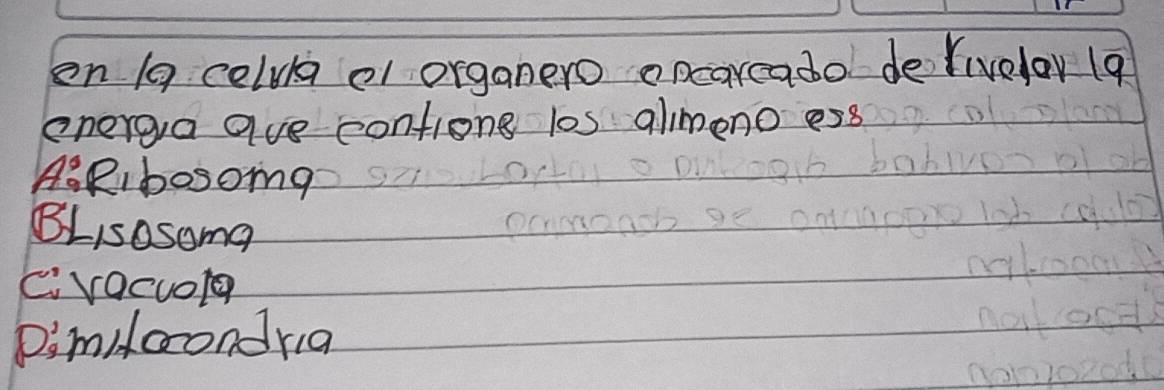 en la celula el organero encarcado de rivelar la
energia que contione los alimeno es:
A: Ribosoma
B Lisosoma
C: vacuola
D: mitocondria